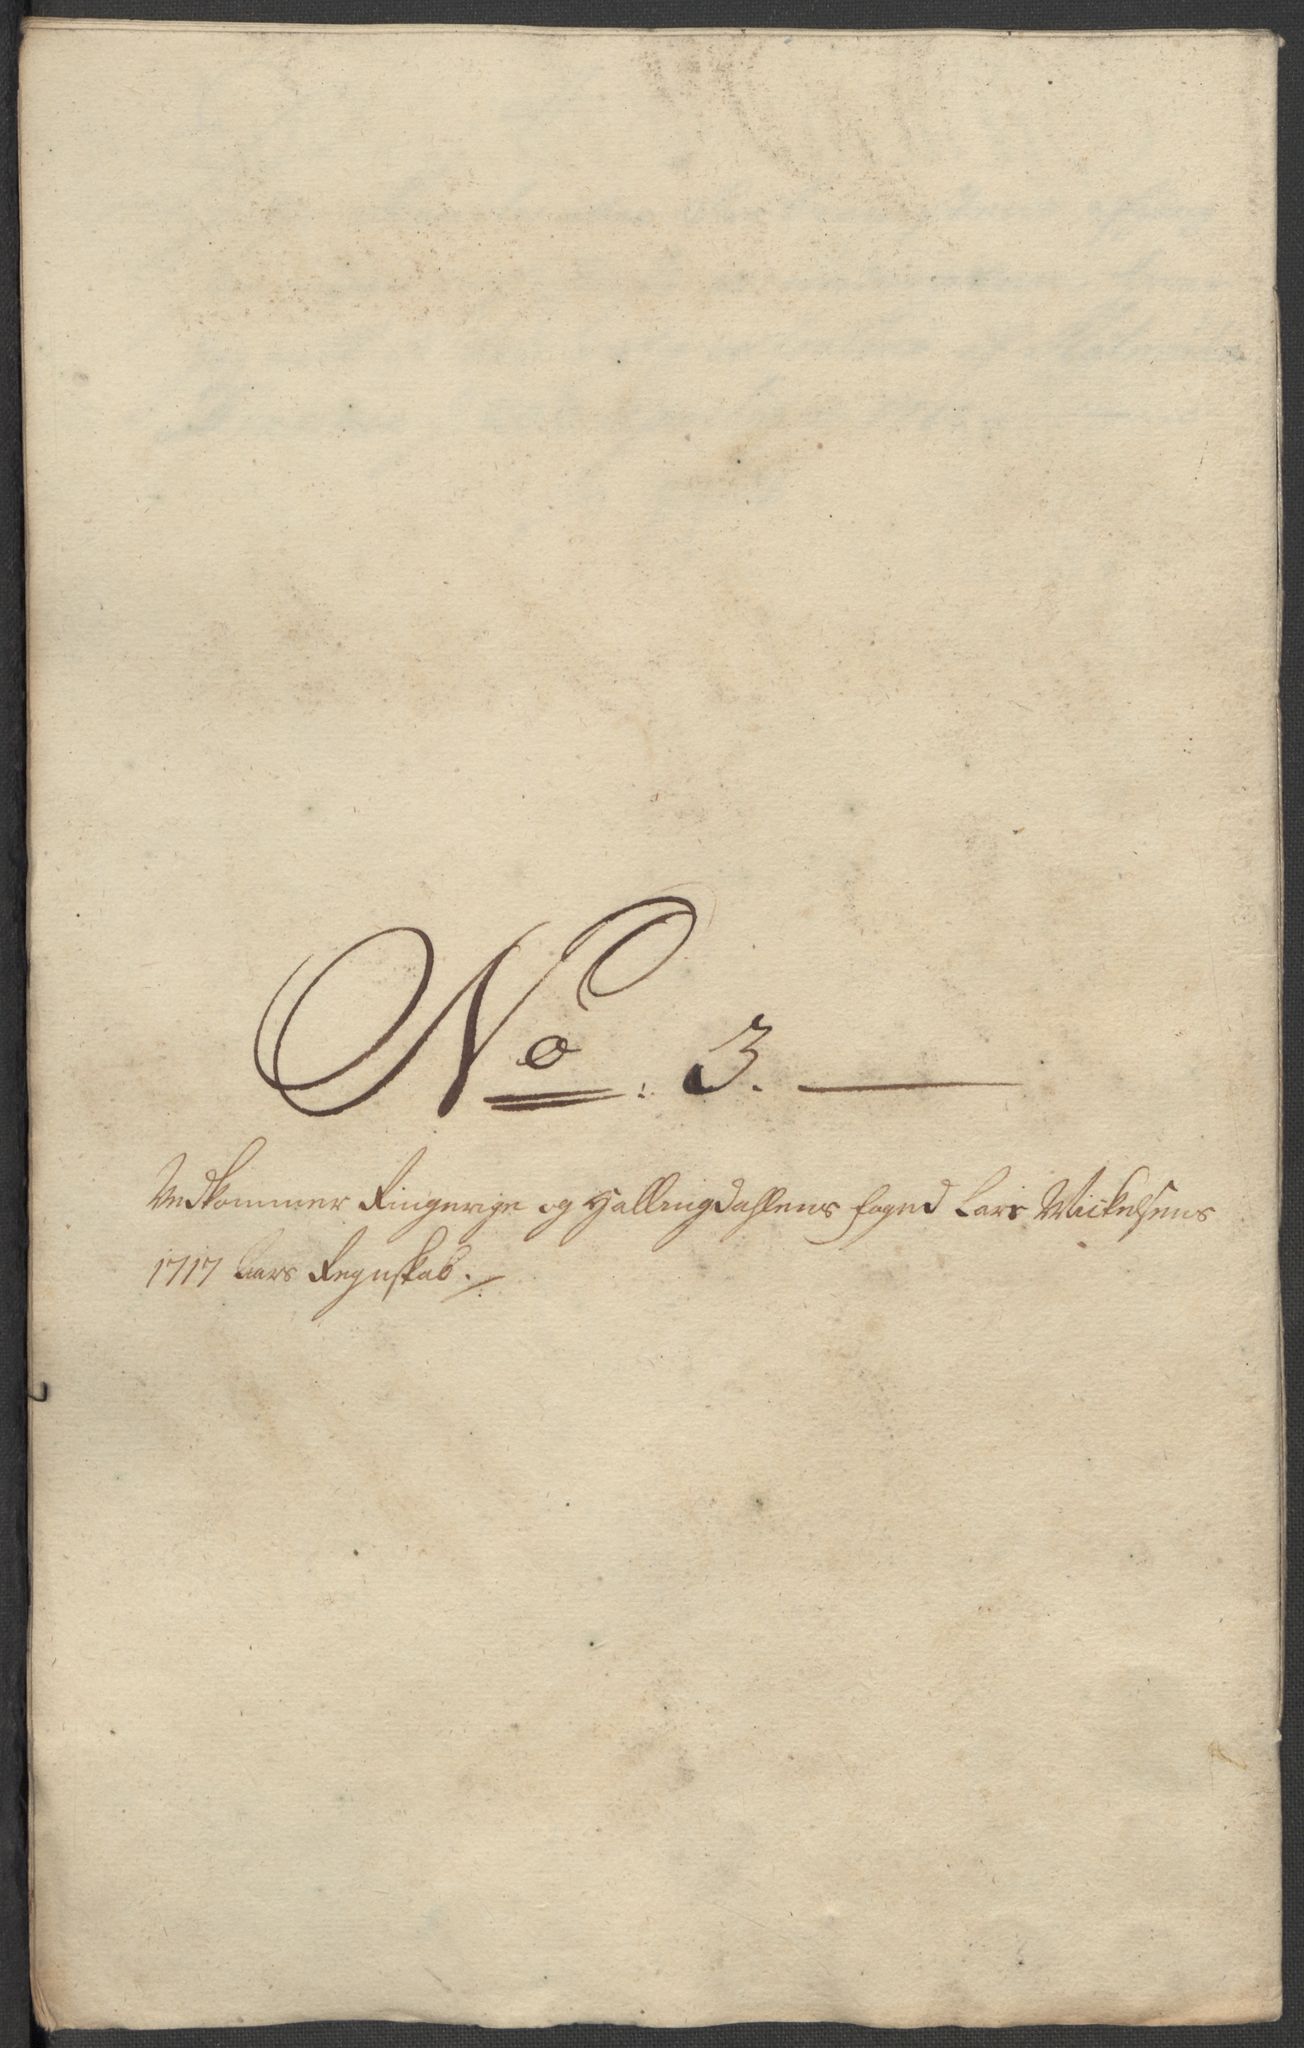 No: 3.
Vedkommer Ringerige og Hallingdahlens foged Lars Mickelsens
1717 Aars Regnskab.